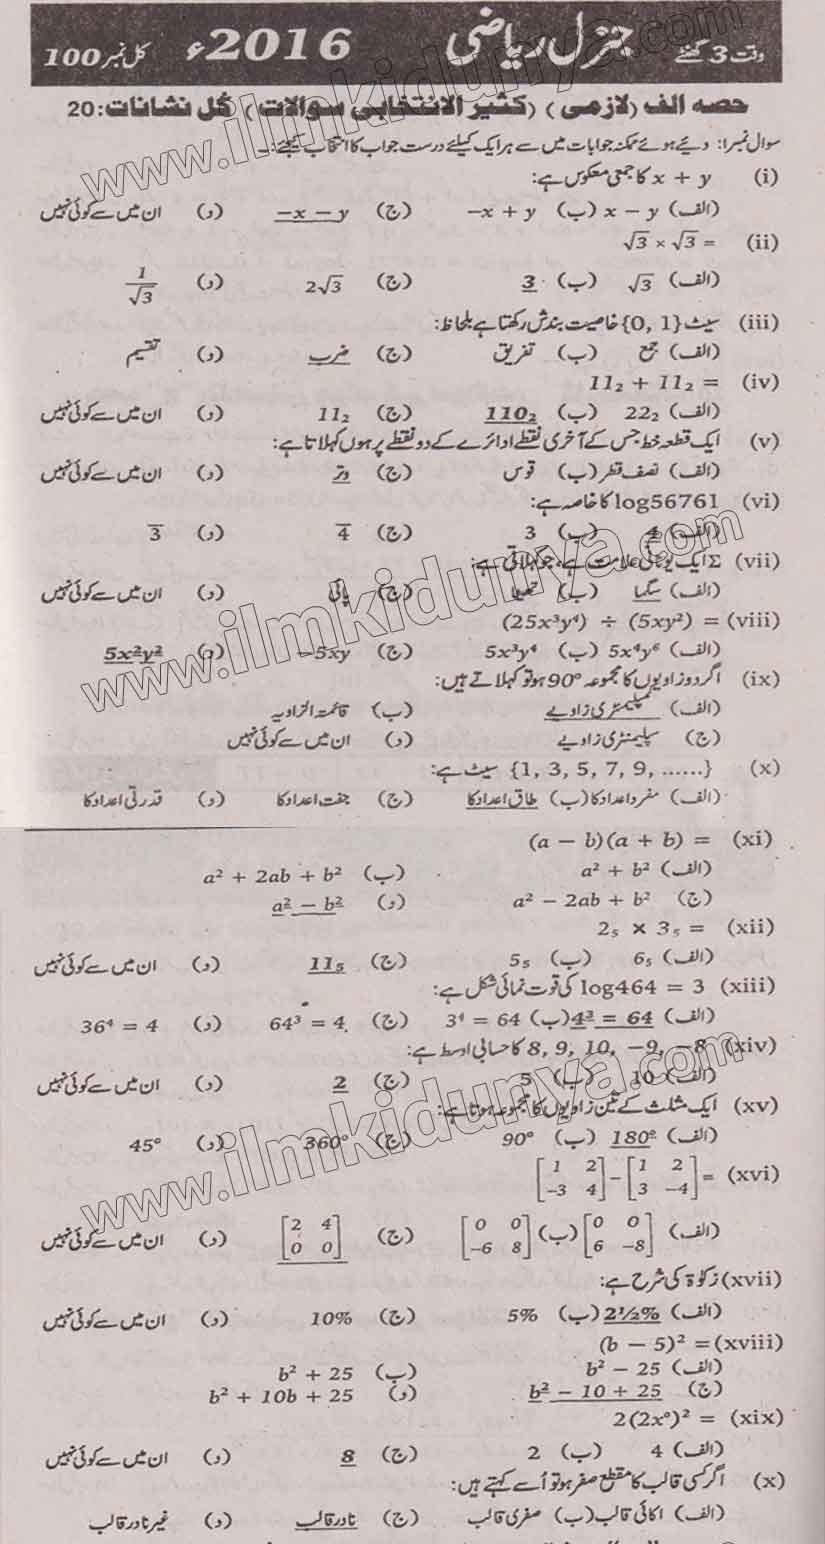 وقت 3 گھنٹے جنرل ریاضی 2016ء کل نمبر 100
حصہ الف (لازمی) (کثیر الانتخابی سوالات) کُل نشانات: 20
سوال نمبر1: دیئے ہوئے ممکنہ جوابات میں سے ہر ایک کیلئے درست جواب کا انتخاب کیجئے:۔
(i) x + y کا جمعی معکوس ہے:
(الف) x − y (ب) −x + y (ج) −x − y (د) ان میں سے کوئی نہیں
(ii) √3 × √3 =
(الف) √3 (ب) 3 (ج) 2√3 (د) 1/√3
(iii) سیٹ {0, 1} خاصیت بندش رکھتا ہے بلحاظ:
(الف) جمع (ب) تفریق (ج) ضرب (د) تقسیم
(iv) 11₂ + 11₂ =
(الف) 22₂ (ب) 110₂ (ج) 11₂ (د) ان میں سے کوئی نہیں
(v) ایک قطعہ خط جس کے آخری نقطے دائرے کے دو نقطے پر ہوں کہلاتا ہے:
(الف) نصف قطر (ب) قوس (ج) وتر (د) ان میں سے کوئی نہیں
(vi) log56761 کا خاصہ ہے:
(الف) 4 (ب) 3 (ج) 4̅ (د) 3̅
(vii) Σ ایک یونانی علامت ہے، جو کہلاتی ہے:
(الف) سگما (ب) تھیٹا (ج) پائی (د) ان میں سے کوئی نہیں
(viii) (25x³y⁴) ÷ (5xy²) =
(الف) 5x⁴y⁶ (ب) 5x³y⁴ (ج) −5xy (د) 5x²y²
(ix) اگر دو زاویوں کا مجموعہ 90° ہو تو کہلاتے ہیں:
(الف) کمپلیمنٹری زاویے (ب) قائمتہ الزاویہ
(ج) سپلیمنٹری زاویے (د) ان میں سے کوئی نہیں
(x) {1, 3, 5, 7, 9, ......} سیٹ ہے:
(الف) مفرد اعداد کا (ب) طاق اعداد کا (ج) جفت اعداد کا (د) قدرتی اعداد کا
(xi) (a − b)(a + b) =
(الف) a² + b² (ب) a² + 2ab + b²
(ج) a² − 2ab + b² (د) a² − b²
(xii) 2₅ × 3₅ =
(الف) 6₅ (ب) 5₅ (ج) 11₅ (د) ان میں سے کوئی نہیں
(xiii) log464 = 3 کی قوت نمائی شکل ہے:
(الف) 4³ = 64 (ب) 3⁴ = 64 (ج) 64³ = 4 (د) 36⁴ = 4
(xiv) 8, 9, 10, −9, −8 کا حسابی اوسط ہے:
(الف) 10 (ب) 5 (ج) 2 (د) ان میں سے کوئی نہیں
(xv) ایک مثلث کے تین زاویوں کا مجموعہ ہوتا ہے:
(الف) 180° (ب) 90° (ج) 360° (د) 45°
(xvi) [1 2; −3 4] − [1 2; 3 −4] =
(الف) [0 0; 6 −8] (ب) [0 0; −6 8] (ج) [2 4; 0 0] (د) ان میں سے کوئی نہیں
(xvii) زکوٰۃ کی شرح ہے:
(الف) 2½% (ب) 5% (ج) 10% (د) ان میں سے کوئی نہیں
(xviii) (b − 5)² =
(الف) b² − 25 (ب) b² + 25
(ج) b² − 10 + 25 (د) b² + 10b + 25
(xix) 2(2x°)² =
(الف) 4 (ب) 2 (ج) 8 (د) ان میں سے کوئی نہیں
(x) اگر کسی قالب کا مقطع صفر ہو تو اُسے کہتے ہیں:
(الف) اکائی قالب (ب) صفری قالب (ج) نادر قالب (د) غیر نادر قالب
www.ilmkidunya.com
www.ilmkidunya.com
www.ilmkidunya.com